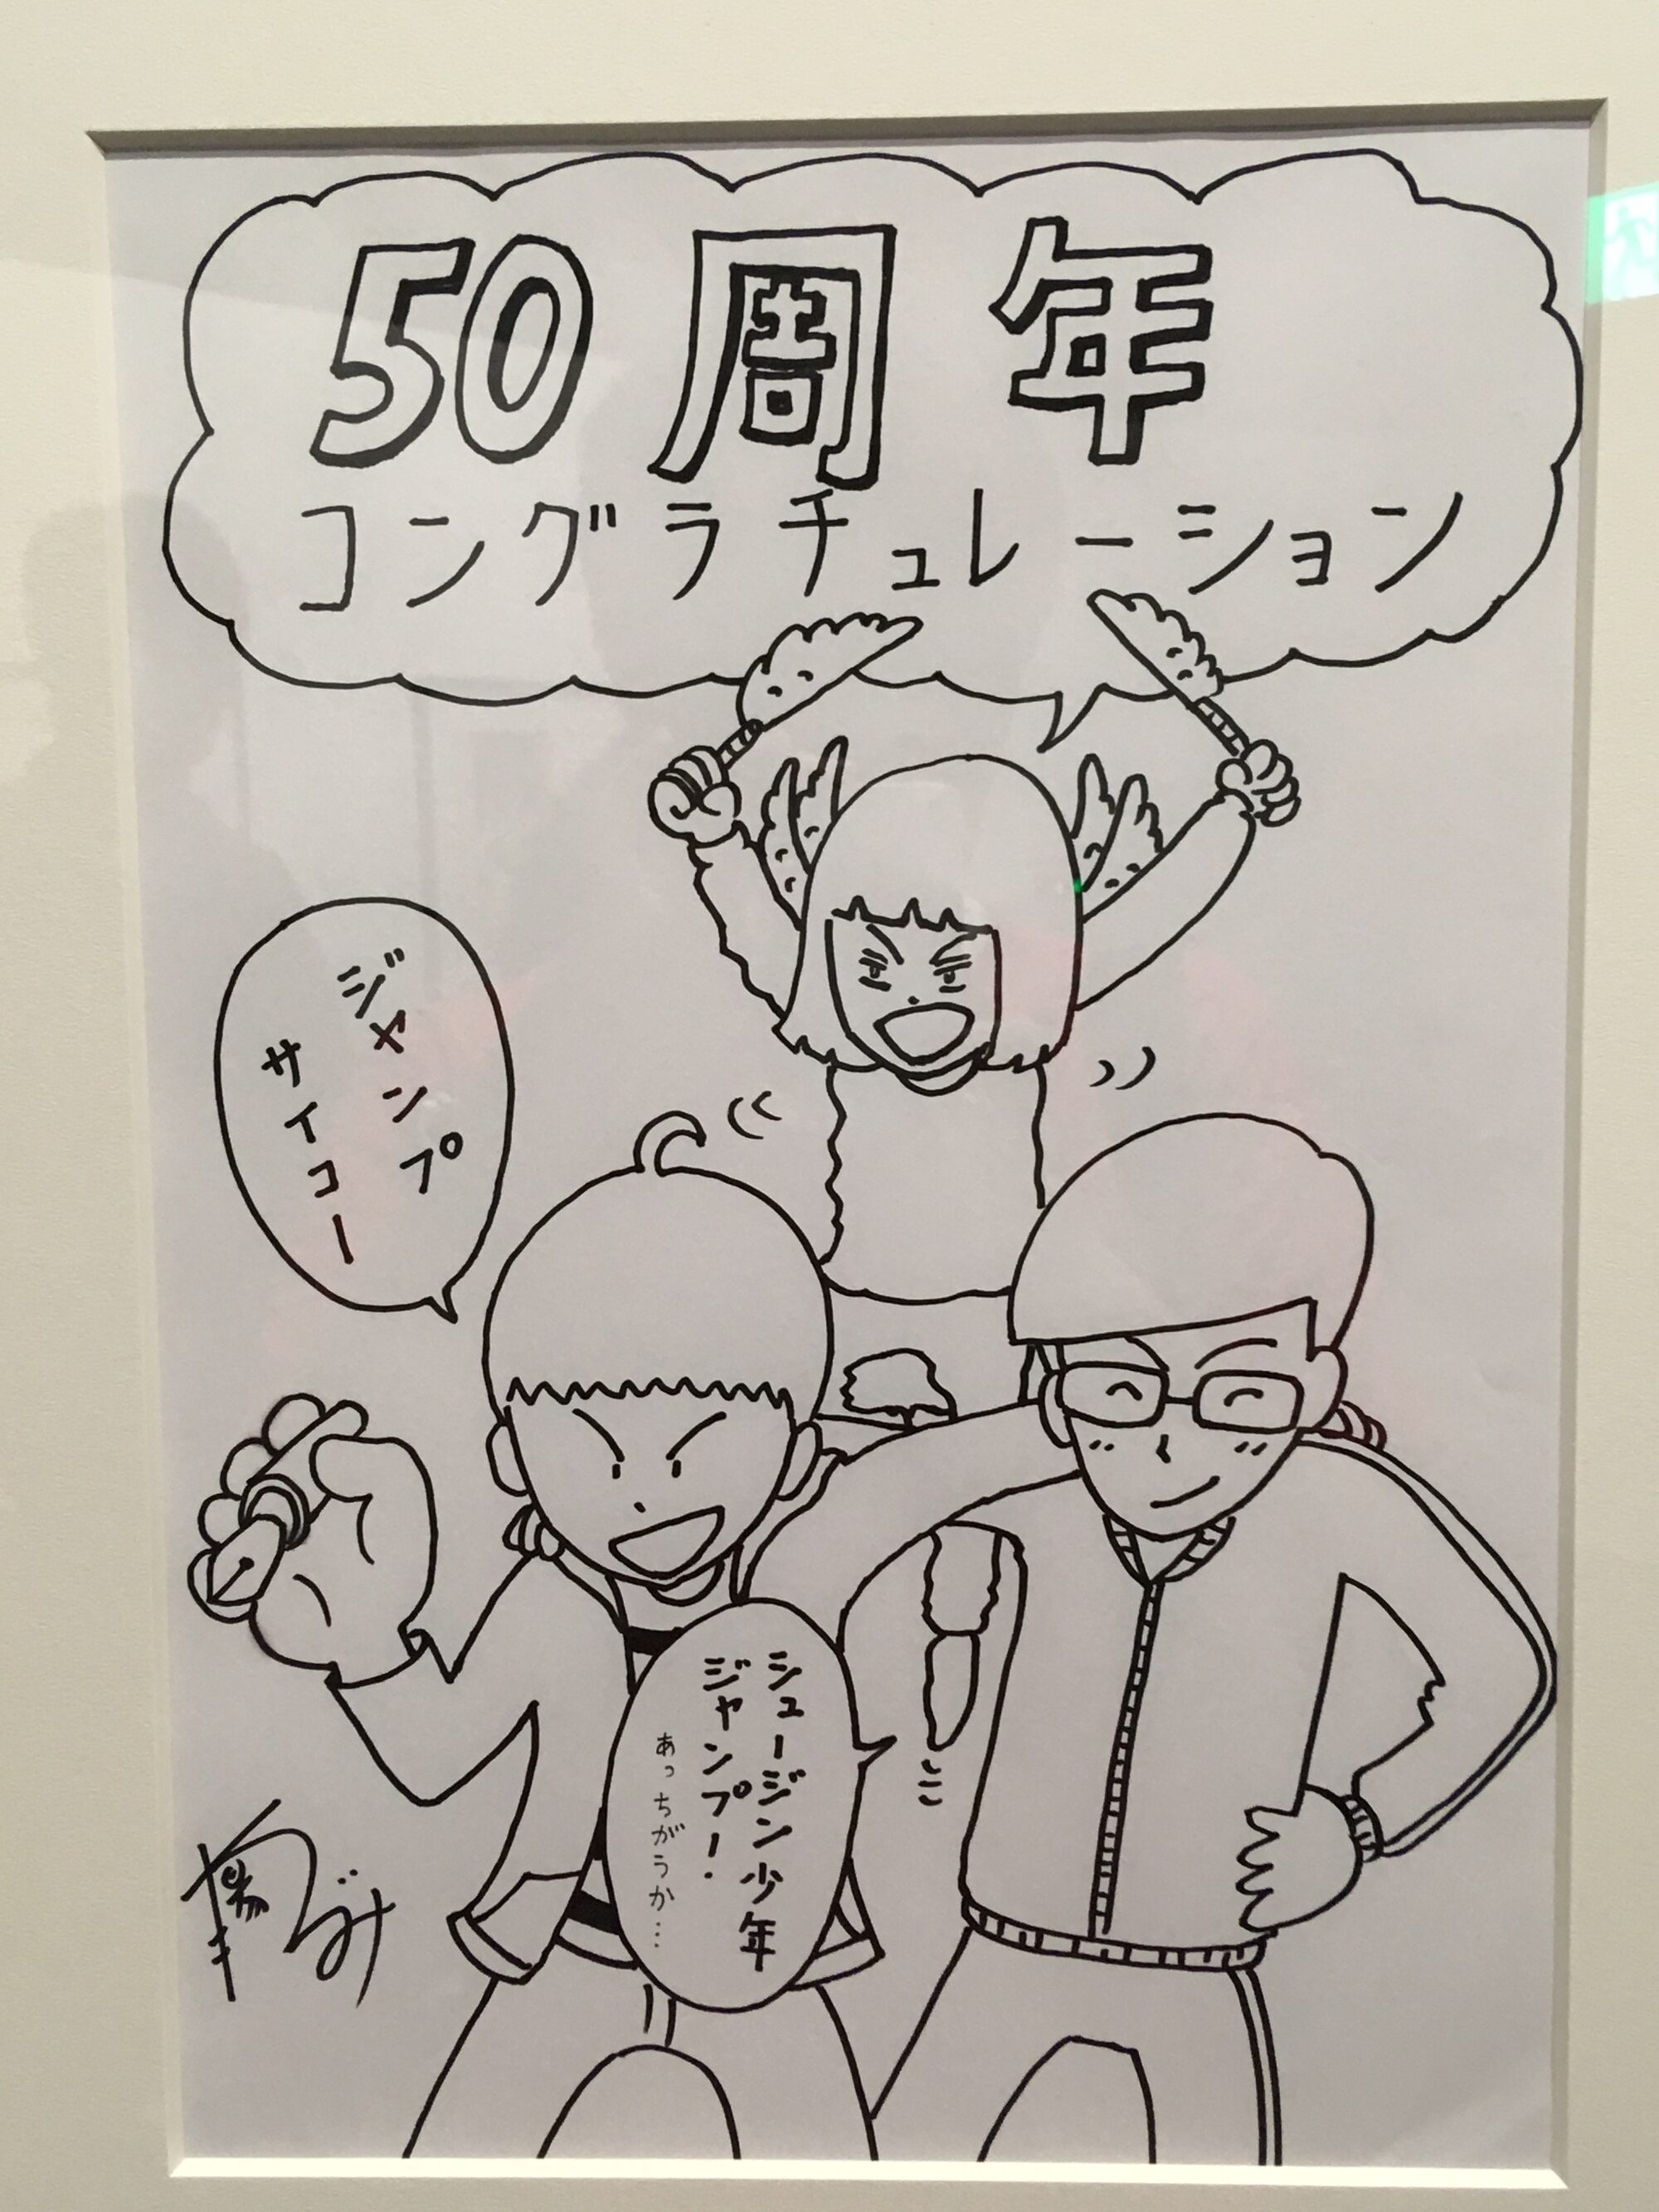 50周年
コングラチュレーション
ジャンプ
サイコー
シュージン少年
ジャンプー.
あっちがうか…